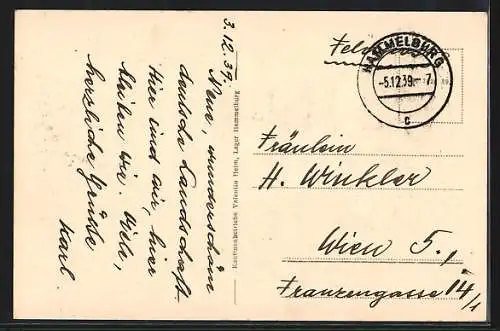 3.12.39.
Neue, wunderschöne
deutsche Landschaft.
Hier sind wir, hier
bleiben wir. Viele,
herzliche Grüsse
Karl.
Kaufmannsbetriebe Valentin Heim, Lager Hammelburg
Feldpost
HAMMELBURG
-5.12.39.-7
c
Fräulein
H. Winkler
Wien 5.,
Franzengasse 14/1